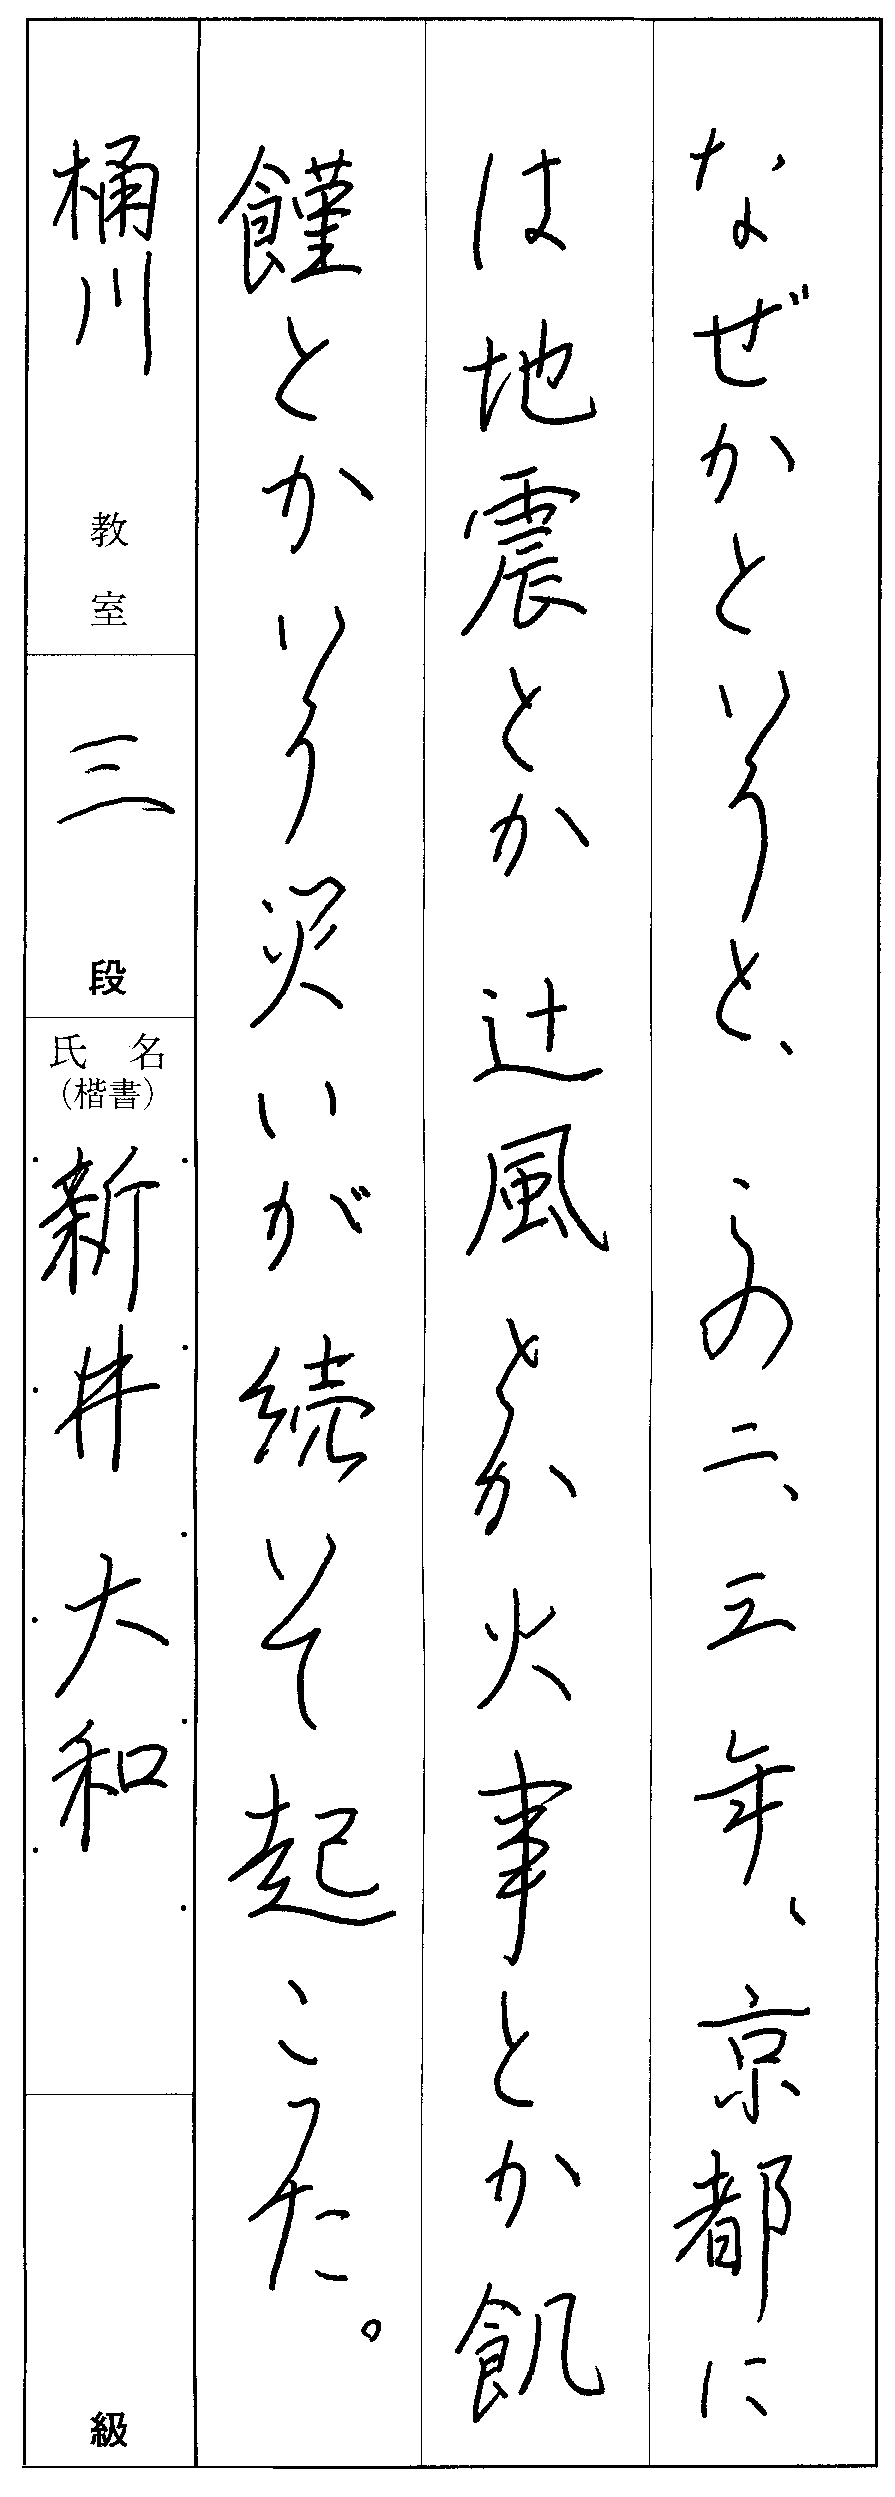 なぜかというと、この二、三年、京都に
は地震とか辻風とか火事とか飢
饉とかいう災いが続いて起こった。
桶川 教室
三 段
氏名
(楷書)
新井大和
級